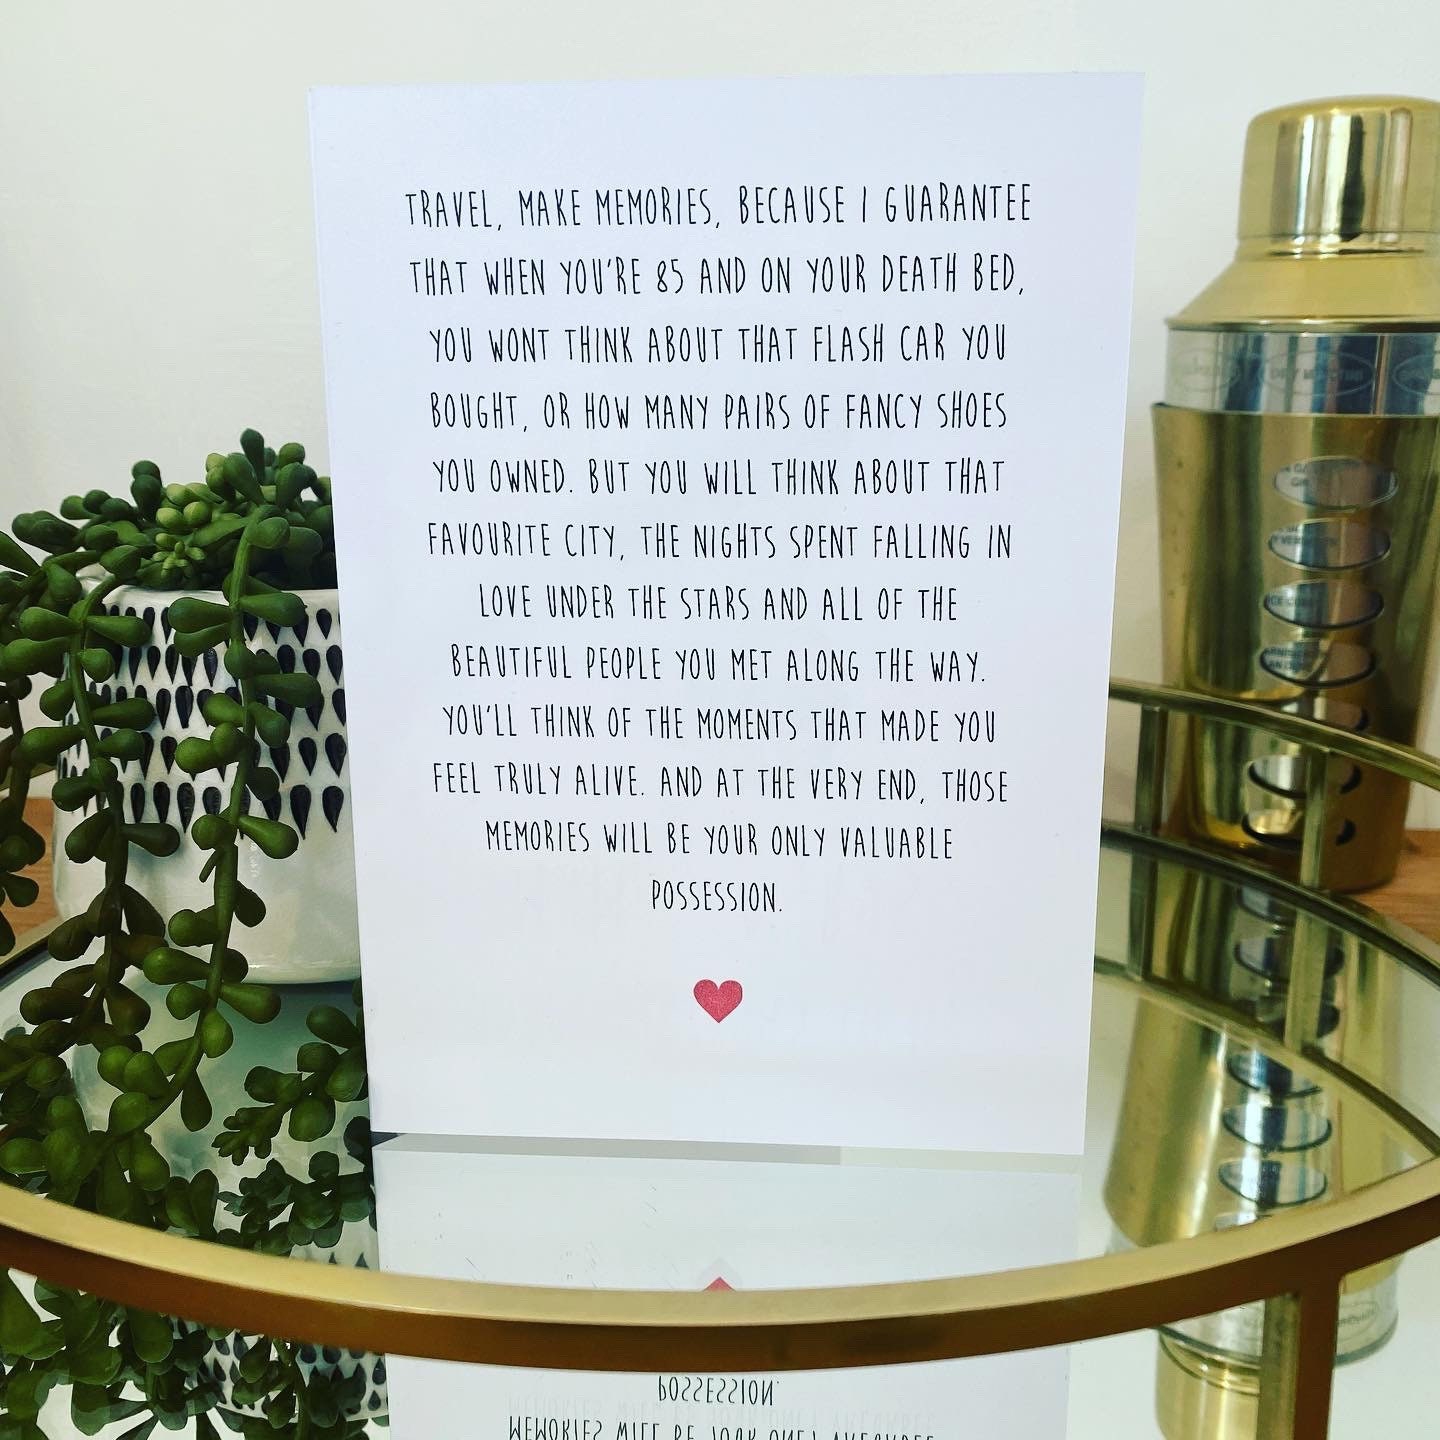 TRAVEL, MAKE MEMORIES, BECAUSE I GUARANTEE
THAT WHEN YOU'RE 85 AND ON YOUR DEATH BED,
YOU WONT THINK ABOUT THAT FLASH CAR YOU
BOUGHT, OR HOW MANY PAIRS OF FANCY SHOES
YOU OWNED. BUT YOU WILL THINK ABOUT THAT
FAVOURITE CITY, THE NIGHTS SPENT FALLING IN
LOVE UNDER THE STARS AND ALL OF THE
BEAUTIFUL PEOPLE YOU MET ALONG THE WAY.
YOU'LL THINK OF THE MOMENTS THAT MADE YOU
FEEL TRULY ALIVE. AND AT THE VERY END, THOSE
MEMORIES WILL BE YOUR ONLY VALUABLE
POSSESSION.